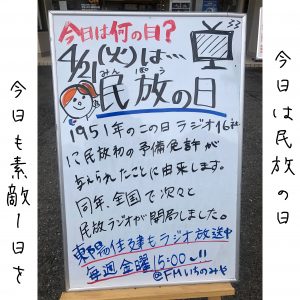 今日は民放の日
今日は何の日？
4/21(火)は…
みんぽう
民放の日
1951年のこの日ラジオ16社
に民放初の予備免許が
与えられたことに由来します。
同年、全国で次々と
民放ラジオが開局しました。
東陽住建もラジオ放送中
毎週金曜15:00〜!!
@FMいちのみや
今日も素敵な1日を